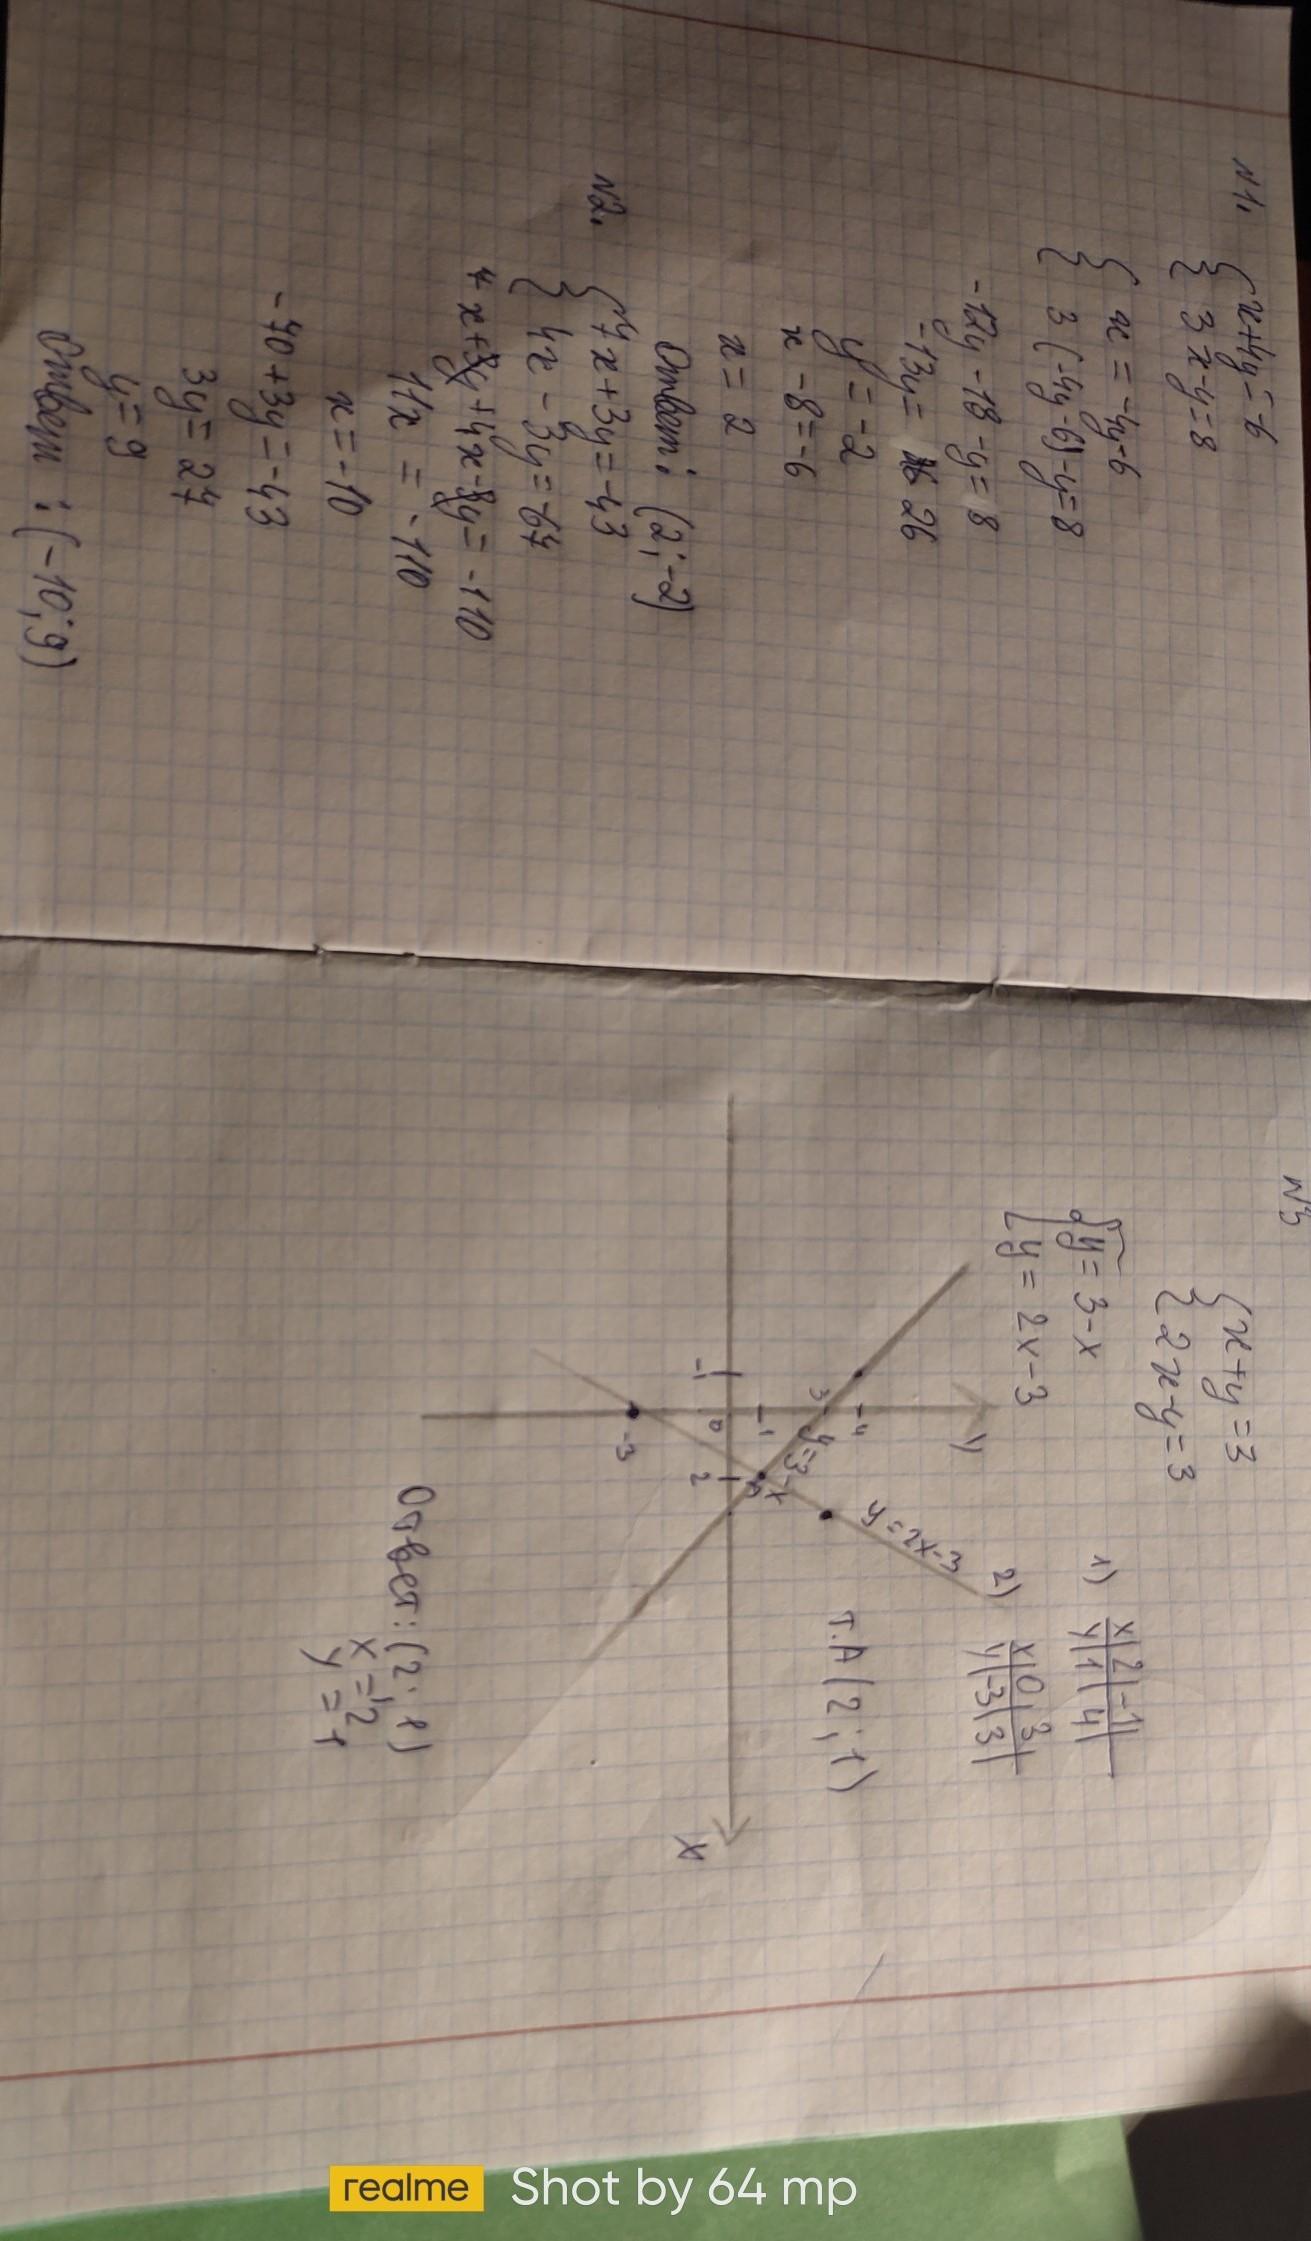 N1.
{ x+4y=-6
{ 3x-y=8
{ x=-4y-6
{ 3(-4y-6)-y=8
-12y-18-y=8
-13y= 26
y=-2
x-8=-6
x=2
Ответ: (2;-2)
N2.
{ 7x+3y=-43
{ 4x-3y=-67
7x+3y+4x-3y=-110
11x=-110
x=-10
-70+3y=-43
3y=27
y=9
Ответ: (-10;9)
N3
{ x+y=3
{ 2x-y=3
{ y=3-x
{ y=2x-3
1) x|2|-1|
y|1|4|
2) x|0|3|
y|-3|3|
т.A(2;1)
y
4
3
y=3-x
y=2x-3
1
-1
0
2
A
x
-3
Ответ: (2;1)
x=2
y=1
realme Shot by 64 mp